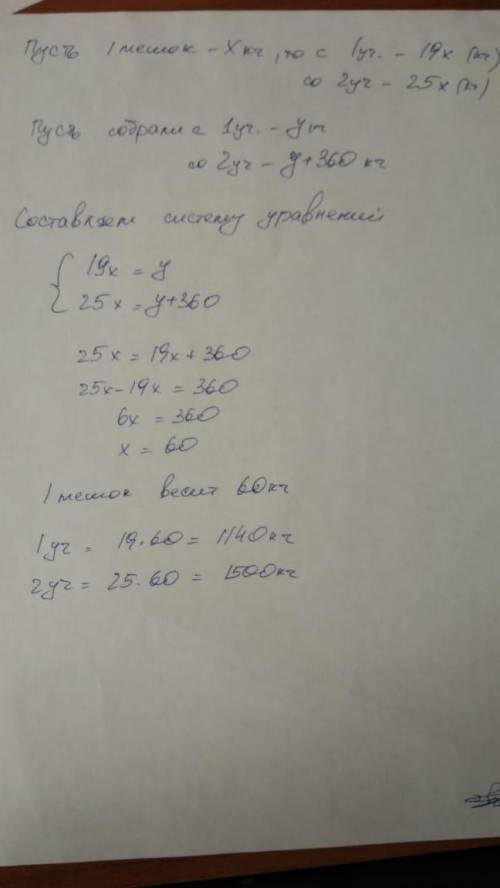 Пусть 1 мешок - x кг, то с 1уч. - 19x (кг)
со 2уч - 25x (кг)
Пусть собрали с 1уч. - y кг
со 2уч - y+360 кг
Составляем систему уравнений
{ 19x = y
25x = y+360
25x = 19x + 360
25x-19x = 360
6x = 360
x = 60
1 мешок весит 60кг
1уч = 19·60 = 1140кг
2уч = 25·60 = 1500кг